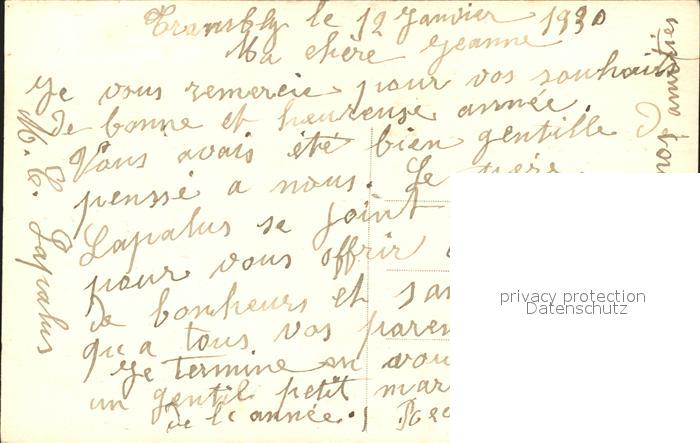 Trambly le 12 Janvier 1930
Ma chère Jeanne
Je vous remercie pour vos souhaits
de bonne et heureuse année.
Vous avais été bien gentille d
penssé a nous. Le père
Lapalus se joint
pour vous offrir
de bonheurs et san
qu a tous vos paren
Je termine en vou
un gentil petit mar
de l année.
M. C. Lapalus
nos amitiés
privacy protection
Datenschutz